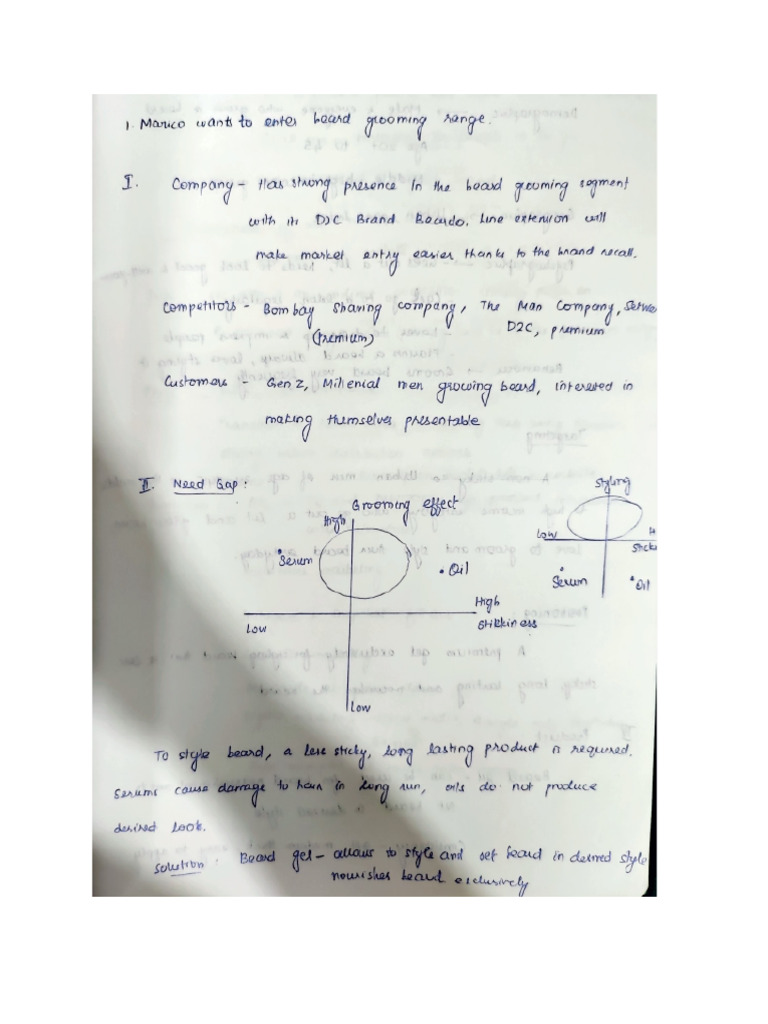 1. Marico wants to enter beard grooming range.
I. Company - Has strong presence In the beard grooming segment
with its D2C Brand Beardo. Line extension will
make market entry easier thanks to the brand recall.
Competitors - Bombay Shaving company, The Man Company,
(Premium) D2C, premium
Customers - Gen Z, Millenial men growing beard, interested in
making themselves presentable
II. Need Gap:
Grooming effect
High
Serum
Oil
Low
High
Stikkiness
Low
Styling
Low
H
Stick
Serum
Oil
To style beard, a less sticky, long lasting product is required.
Serums cause damage to hair in long run, oils do not produce
desired look.
Solution: Beard gel - allows to style and set beard in desired style
nourishes beard exclusively